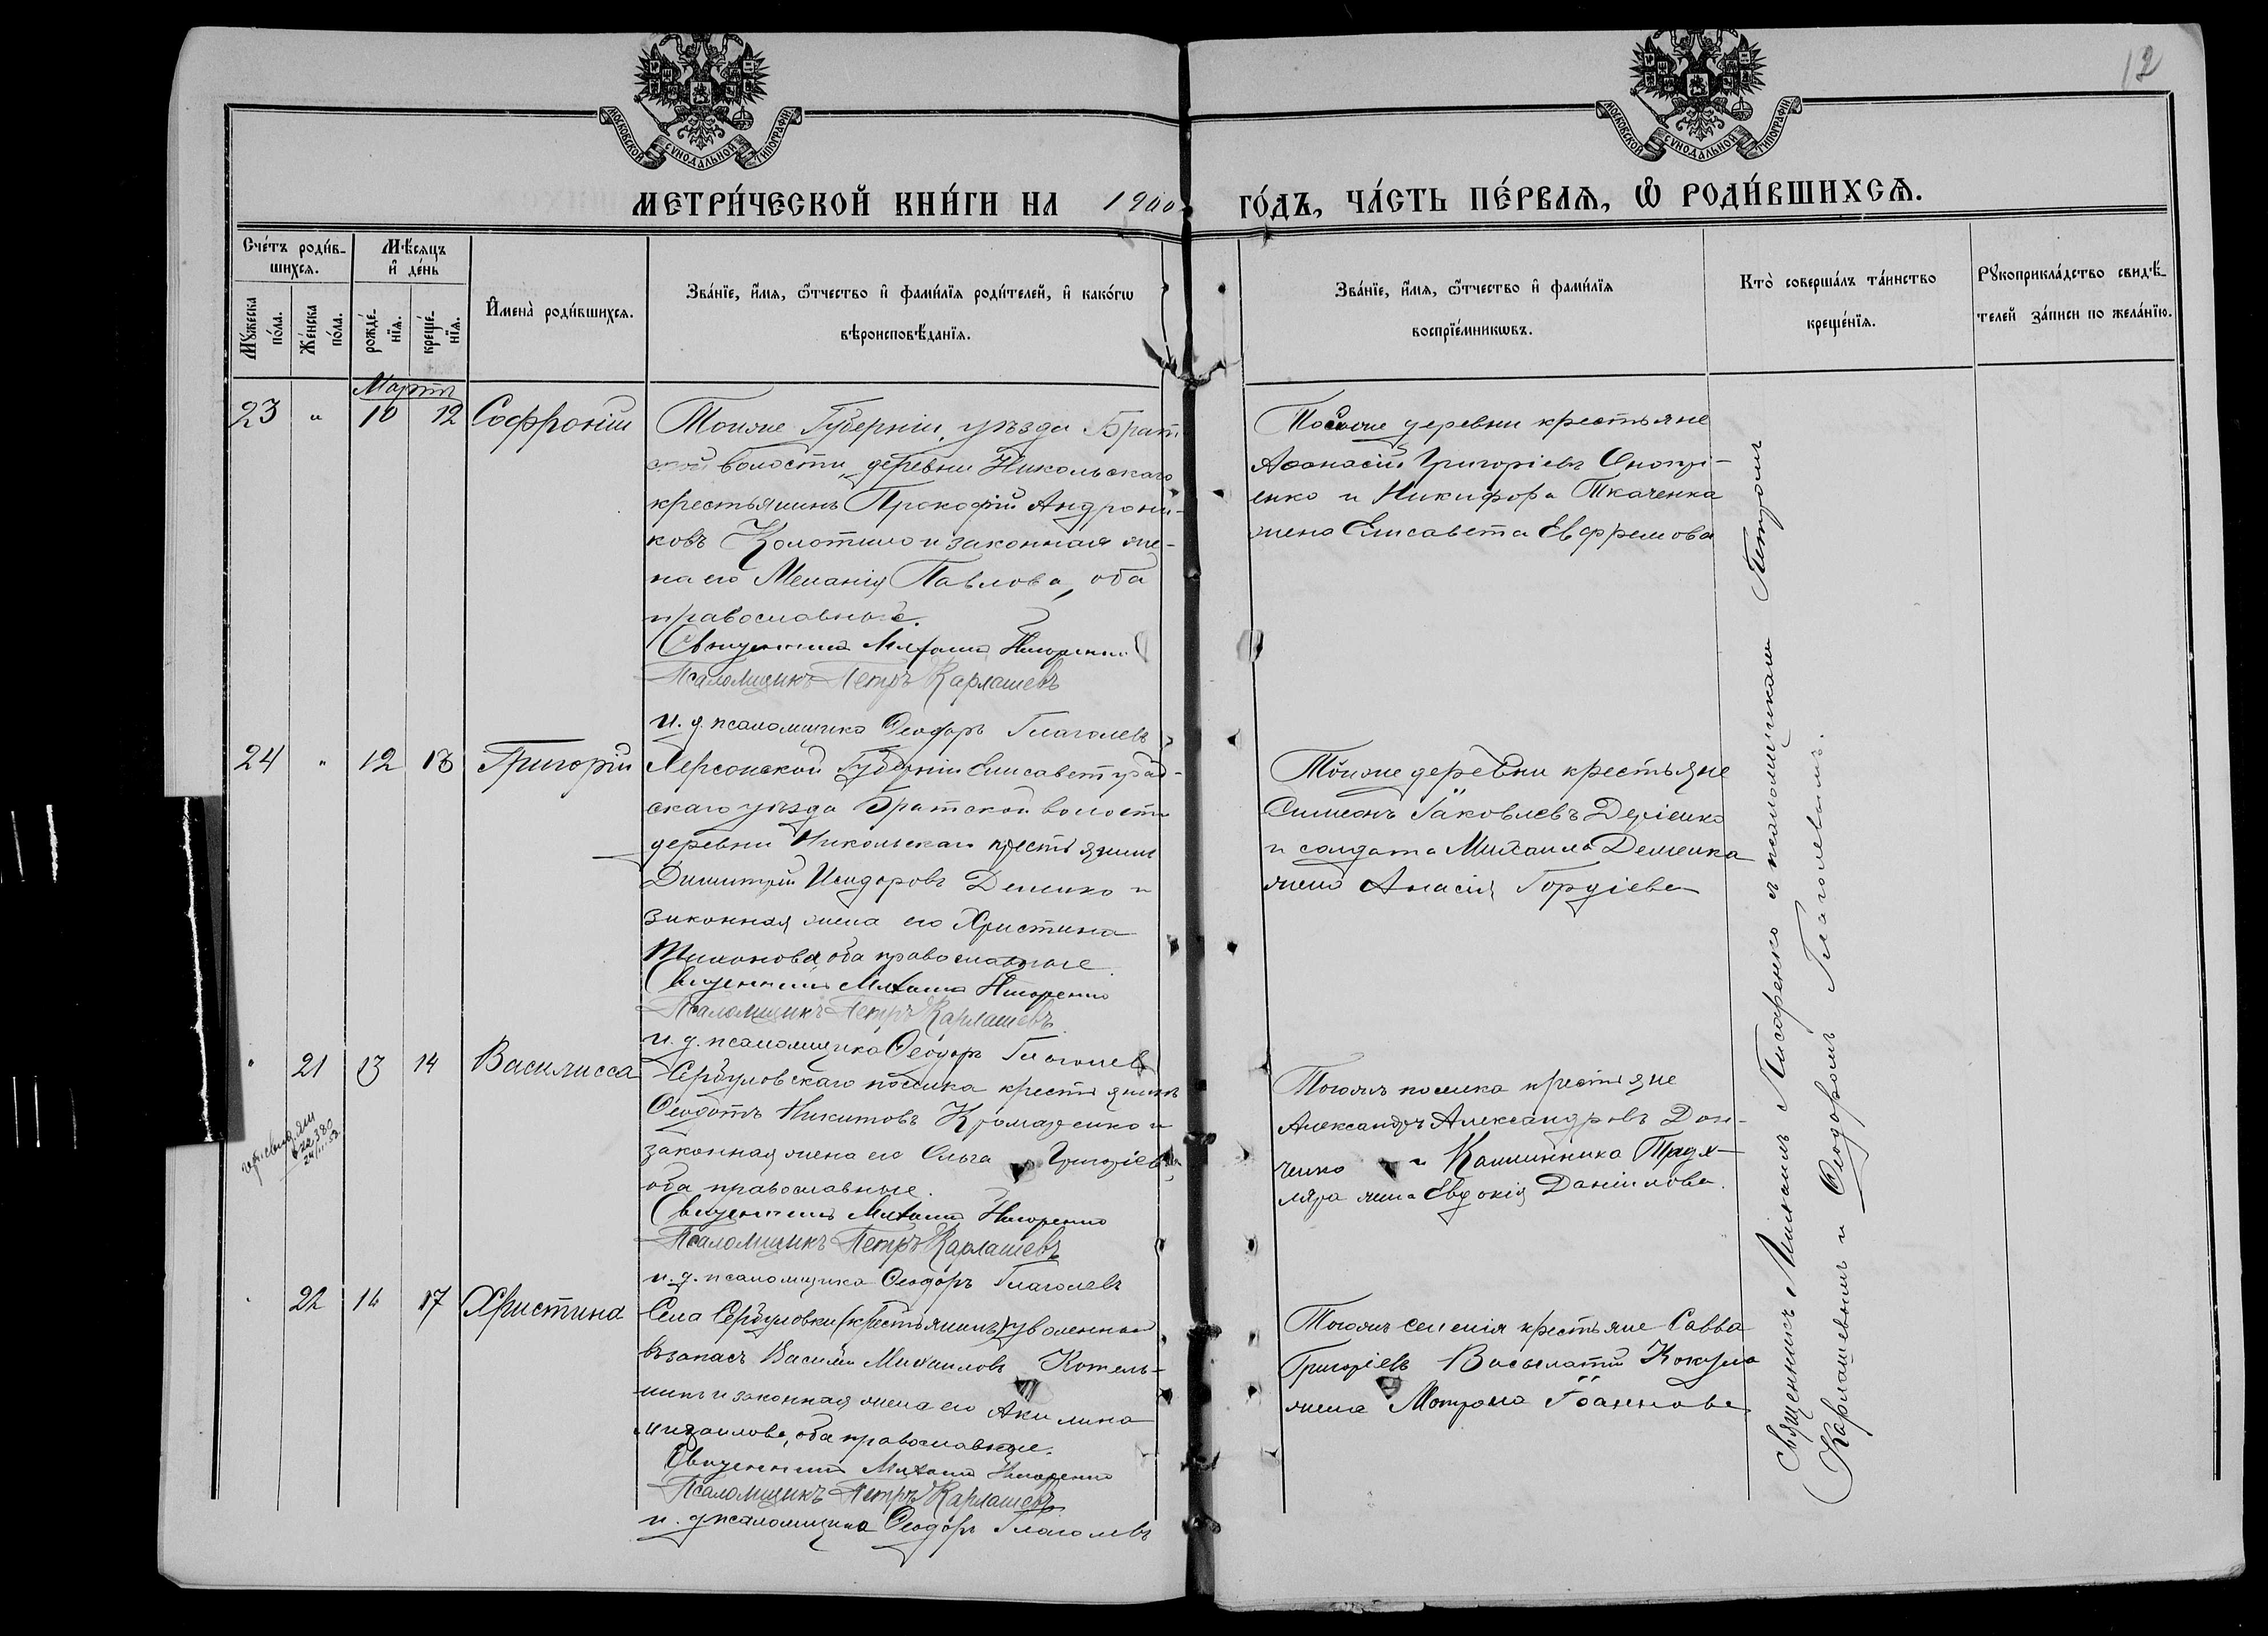 12
МОСКОВСКОЙ СѴНОДАЛЬНОЙ ТИПОГРАФІИ
МОСКОВСКОЙ СѴНОДАЛЬНОЙ ТИПОГРАФІИ
МЕТРИ́ЧЕСКОЙ КНИ́ГИ НА 1900 ГО́ДЪ, ЧА́СТЬ ПЕ́РВАѦ, Ѡ҆ РОДИ́ВШИХСѦ.
Сче́тъ роди́в-
шихсѧ.
Мѣ́сѧцъ
и҆ де́нь
Мꙋ́жеска
по́ла.
Же́нска
по́ла.
рожде́-
нїѧ.
креще́-
нїѧ.
И҆мена̀ роди́вшихсѧ.
Зва́нїе, и҆́мѧ, ѻ҆́тчество и҆ фами́лїѧ роди́телей, и҆ како́гѡ
вѣроисповѣ́данїѧ.
Зва́нїе, и҆́мѧ, ѻ҆́тчество и҆ фами́лїѧ
воспрїе́мникѡвъ.
Кто̀ соверша́лъ та́инство
креще́нїѧ.
Рꙋкоприкла́дство свидѣ́-
телей за́писи по жела́нїю.
Мартъ
23 " 10 12 Софроній
Тойже Губерніи, уѣзда Брат
ской волости, деревни Никольскаго
крестьянинъ Прокофій Андрони-
ковъ Колотило и законная же-
на его Меланія Павлова, оба
православные.
Священникъ Михаилъ
Псаломщикъ Петръ Карлашевъ
и. д. псаломщика Ѳеодоръ Глаголевъ
деревни крестьяне
Аѳанасій Григоріевъ Оноприˉ
енко и Никифора Ткаченка
жена Елисавета Евфремова
24 " 12 13 Григорій
Херсонской Губерніи Елисаветград-
скаго уѣзда Братской волости
деревни Никольскаго крестьянинъ
Димитрій Исидоровъ Деменко и
законная жена его Христина
Тимонова, оба православные.
Священникъ Михаилъ
Псаломщикъ Петръ Карлашевъ
и. д. псаломщика Ѳеодоръ Глаголевъ
Тойже деревни крестьяне
Симеонъ Іаковлевъ
и солдата Михаила Деменка
жена Гордіева
" 21 13 14 Василисса
Сербуловскаго поселка крестьянинъ
Ѳеодотъ Никитовъ Кромаренко и
законная жена его Ольга Григоріева,
оба православные.
Священникъ Михаилъ
Псаломщикъ Петръ Карлашевъ
и. д. псаломщика Ѳеодоръ Глаголевъ
Тогожъ поселка крестьяне
Александръ Александровъ Дон-
ченко и
жена Евдокія Даніилова.
" 22 14 17 Христина
Села Сербуловки (крестьянинъ) уволенный
въ запасъ Василій Михаиловъ Котель-
никъ и законная жена его Акилина
Михаилова, оба православные.
Священникъ Михаилъ
Псаломщикъ Петръ Карлашевъ
и. д. псаломщика Ѳеодоръ Глаголевъ
Тогожъ селенія крестьяне Савва
Григоріевъ
жена Мотрона Іоаннова
Священникъ Михаилъ съ псаломщиками Петромъ
Карлашевымъ и Ѳеодоромъ Глаголевымъ.